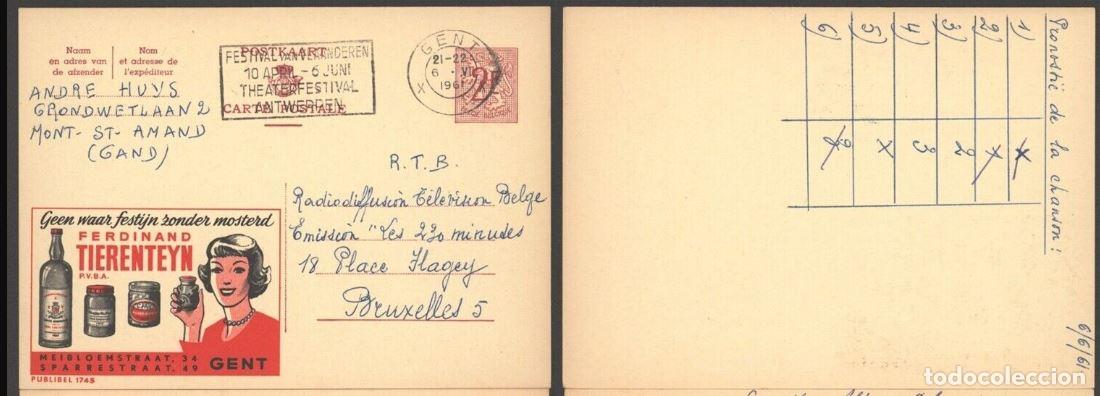 Naam
en adres van
de afzender
Nom
et adresse de
l'expéditeur
POSTKAART
CARTE POSTALE
FESTIVAL VAN VLAANDEREN
10 APRIL - 6 JUNI
THEATERFESTIVAL
ANTWERPEN
GENT
21-22
6 - VI
1961
X X
2F
ANDRE HUYS
GRONDWETLAAN 2
MONT-ST-AMAND
(GAND)
R.T.B.
Radiodiffusion Télévision Belge
Emission "Les 230 minutes
18 Place Flagey
Bruxelles 5
Geen waar festijn zonder mosterd
FERDINAND
TIERENTEYN
P.V.B.A.
MEIBLOEMSTRAAT, 34
SPARRESTRAAT, 49 GENT
PUBLIBEL 1745
Pronostic de la chanson :
1) X
2) X
3) 2
4) 3
5) X
6)
6/6/61
todocoleccion